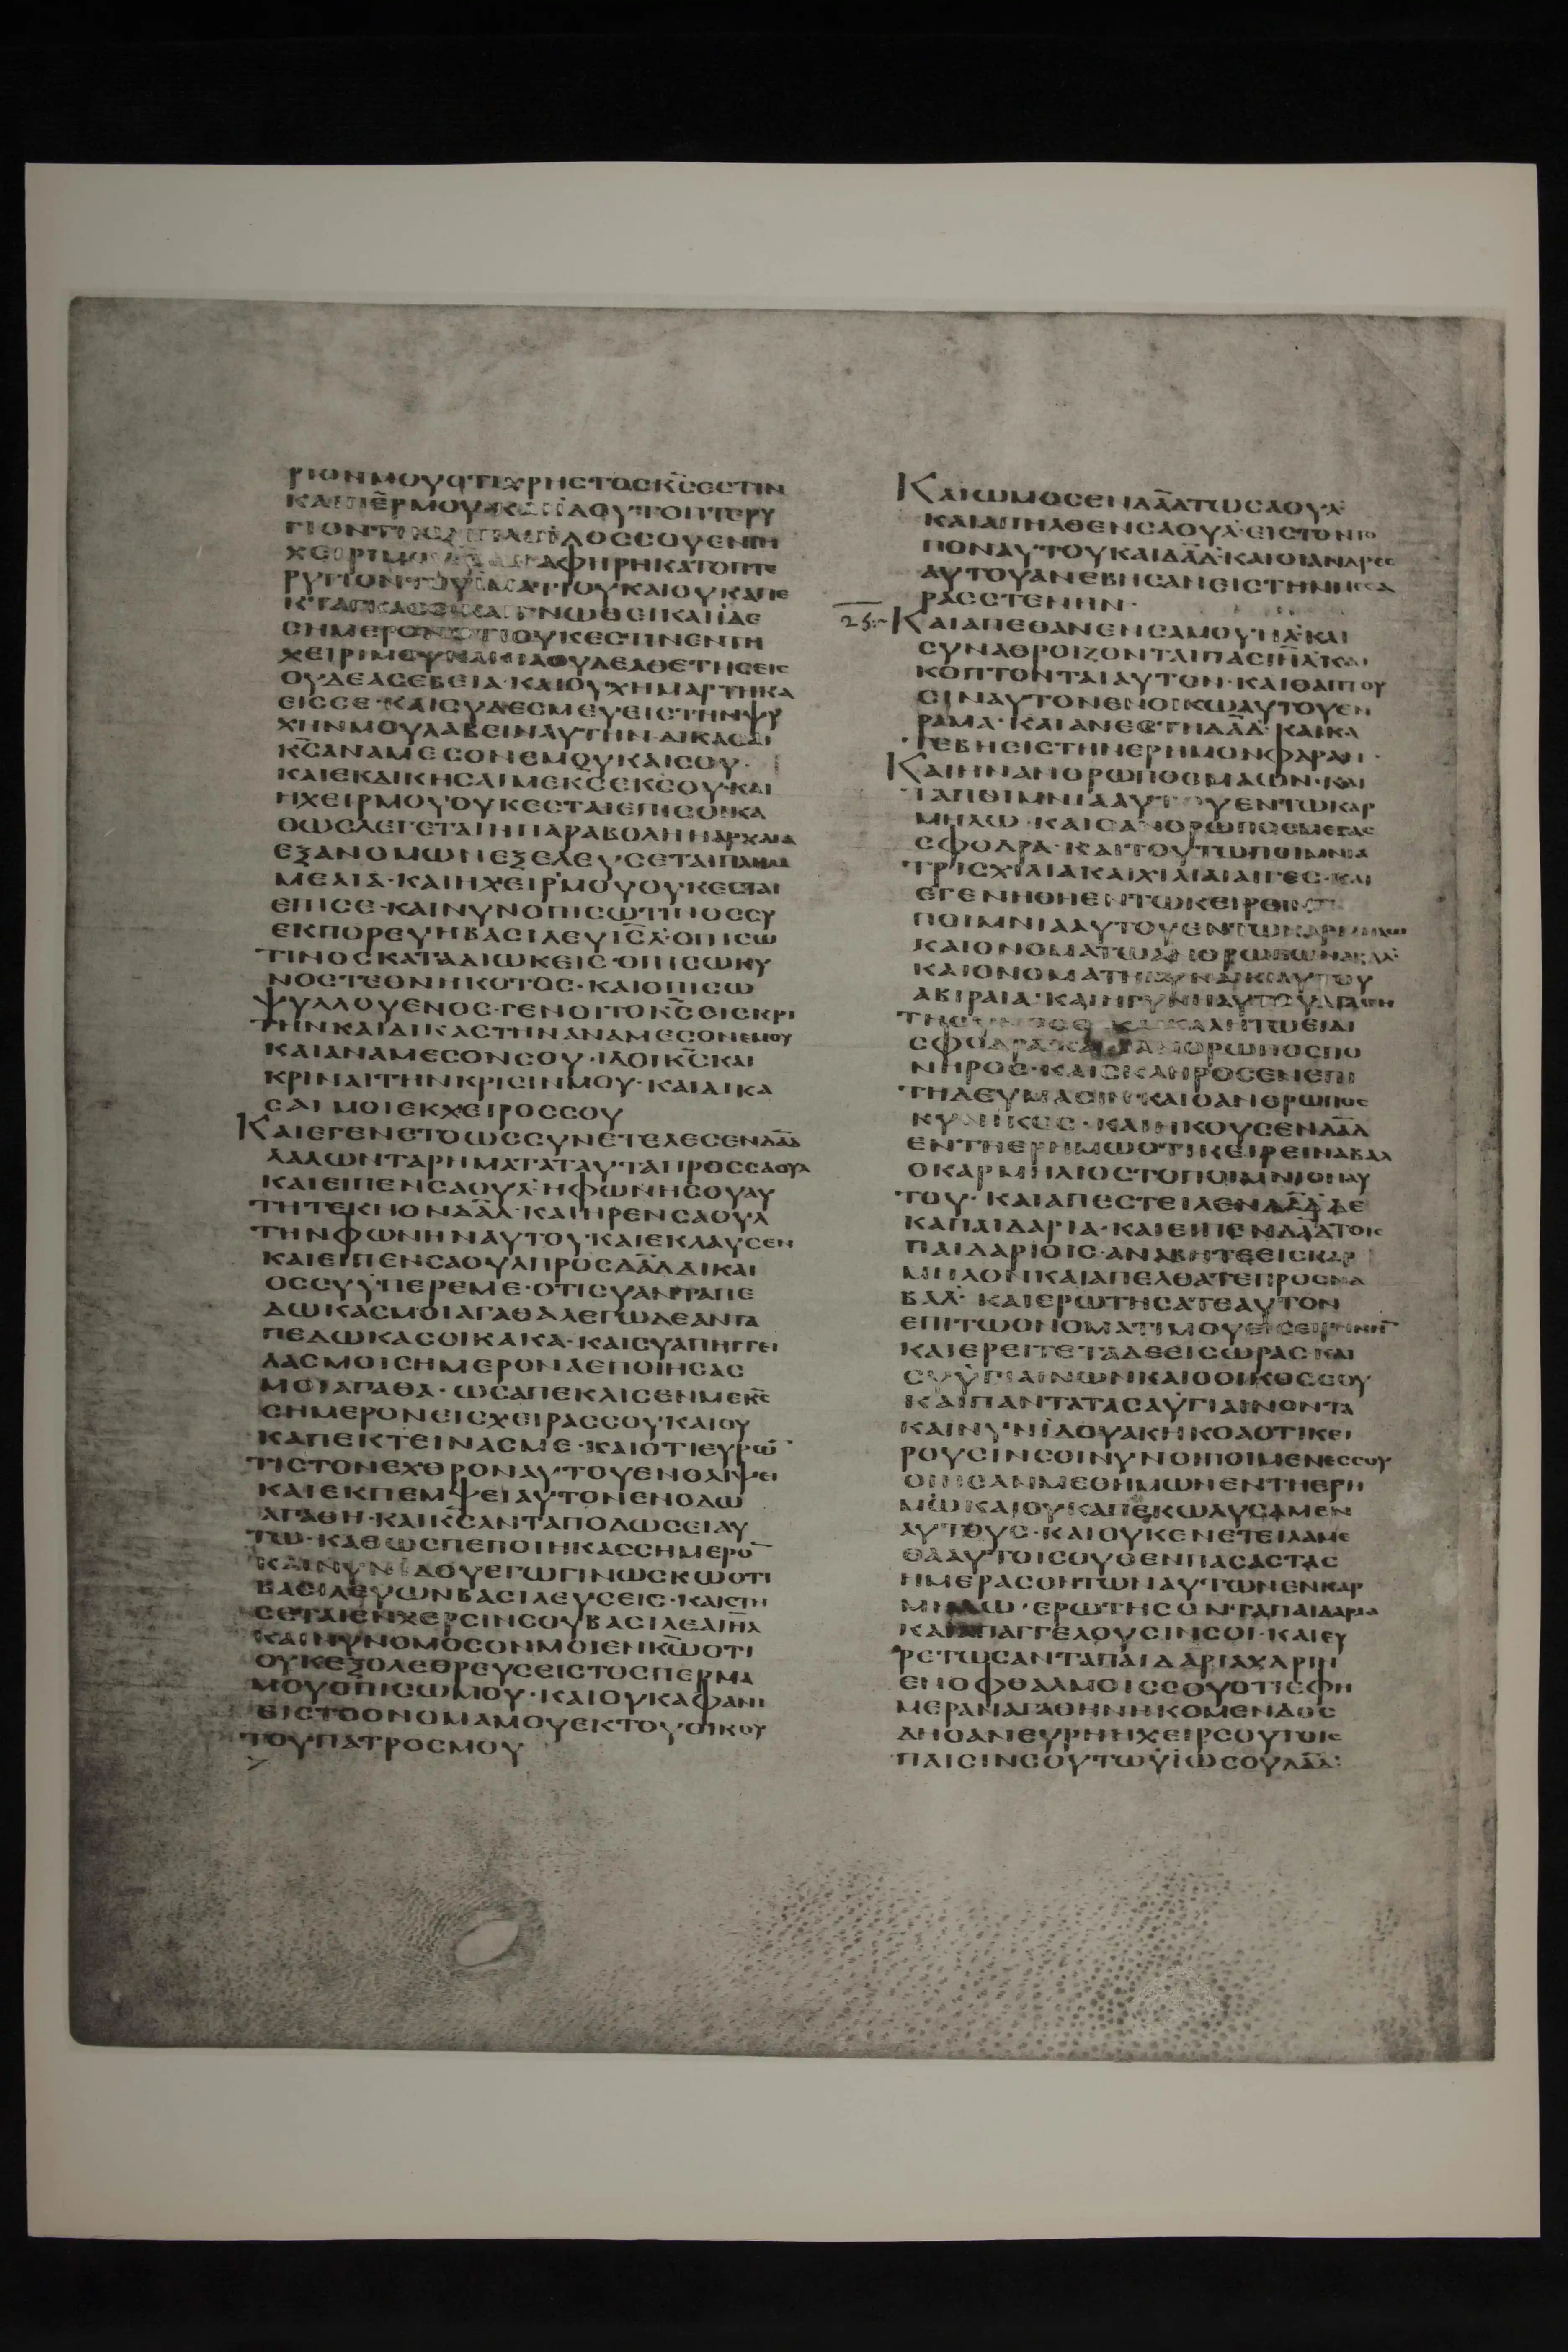 ΡΙΟΝΜΟΥΟΤΙΧΡΗΣΤΟΣΚ̅Σ̅ΕΣΤΙΝ
ΧΕΙΡΙΜΟΥ
ΡΥΓΙΟΝ ΚΑΙΟΥΚΑΠΕ
ΓΝΩΘΕΙΚΑΙΙΔΕ
ΣΗΜΕΡΟΝΟΤΙΟΥΚΕΣΤΙΝΕΝΤΗ
ΧΕΙΡΙΜΟΥΚΑΚΙΑΟΥΔΕΑΘΕΤΗΣΕΙΣ
ΟΥΔΕΑΣΕΒΕΙΑ·ΚΑΙΟΥΧΗΜΑΡΤΗΚΑ
ΕΙΣΣΕ·ΚΑΙΣΥΔΕΣΜΕΥΕΙΣΤΗΝΨΥ
ΧΗΝΜΟΥΛΑΒΕΙΝΑΥΤΗΝ·ΔΙΚΑΣΑΙ
Κ̅Σ̅ΑΝΑΜΕΣΟΝΕΜΟΥΚΑΙΣΟΥ·
ΚΑΙΕΚΔΙΚΗΣΑΙΜΕΚ̅Σ̅ΕΚΣΟΥ·ΚΑΙ
ΗΧΕΙΡΜΟΥΟΥΚΕΣΤΑΙΕΠΙΣΟΙΚΑ
ΘΩΣΛΕΓΕΤΑΙΗΠΑΡΑΒΟΛΗΗΑΡΧΑΙΑ
ΕΞΑΝΟΜΩΝΕΞΕΛΕΥΣΕΤΑΙΠΛΗΜ
ΜΕΛΙΑ·ΚΑΙΗΧΕΙΡΜΟΥΟΥΚΕΣΤΑΙ
ΕΠΙΣΕ·ΚΑΙΝΥΝΟΠΙΣΩΤΙΝΟΣΣΥ
ΕΚΠΟΡΕΥΗΒΑΣΙΛΕΥΙΣ̅Λ̅·ΟΠΙΣΩ
ΤΙΝΟΣΚΑΤΑΔΙΩΚΕΙΣ·ΟΠΙΣΩΚΥ
ΝΟΣΤΕΘΝΗΚΟΤΟΣ·ΚΑΙΟΠΙΣΩ
ΨΥΛΛΟΥΕΝΟΣ·ΓΕΝΟΙΤΟΚ̅Σ̅ΕΙΣΚΡΙ
ΤΗΝΚΑΙΔΙΚΑΣΤΗΝΑΝΑΜΕΣΟΝΕΜΟΥ
ΚΑΙΑΝΑΜΕΣΟΝΣΟΥ·ΙΔΟΙΚ̅Σ̅ΚΑΙ
ΚΡΙΝΑΙΤΗΝΚΡΙΣΙΝΜΟΥ·ΚΑΙΔΙΚΑ
ΣΑΙΜΟΙΕΚΧΕΙΡΟΣΣΟΥ
ΚΑΙΕΓΕΝΕΤΟΩΣΣΥΝΕΤΕΛΕΣΕΝΔ̅Α̅Δ̅
ΛΑΛΩΝΤΑΡΗΜΑΤΑΤΑΥΤΑΠΡΟΣΣΑΟΥΛ
ΚΑΙΕΙΠΕΝΣΑΟΥΛ·ΗΦΩΝΗΣΟΥΑΥ
ΤΗΤΕΚΝΟΝΔ̅Α̅Δ̅·ΚΑΙΗΡΕΝΣΑΟΥΛ
ΤΗΝΦΩΝΗΝΑΥΤΟΥ·ΚΑΙΕΚΛΑΥΣΕΝ
ΚΑΙΕΙΠΕΝΣΑΟΥΛΠΡΟΣΔ̅Α̅Δ̅ΔΙΚΑΙ
ΟΣΣΥΥΠΕΡΕΜΕ·ΟΤΙΣΥΑΝΤΑΠΕ
ΔΩΚΑΣΜΟΙΑΓΑΘΑ ΕΓΩΔΕΑΝΤΑ
ΠΕΔΩΚΑΣΟΙΚΑΚΑ·ΚΑΙΣΥΑΠΗΓΓΕΙ
ΛΑΣΜΟΙΣΗΜΕΡΟΝΑΕΠΟΙΗΣΑΣ
ΜΟΙΑΓΑΘΑ·ΩΣΑΠΕΚΛΙΣΕΝΜΕΚ̅Σ̅
ΣΗΜΕΡΟΝΕΙΣΧΕΙΡΑΣΣΟΥΚΑΙΟΥ
ΚΑΠΕΚΤΕΙΝΑΣΜΕ·ΚΑΙΟΤΙΕΥΡΩ̅
ΤΙΣΤΟΝΕΧΘΡΟΝΑΥΤΟΥΕΝΘΛΙΨΕΙ
ΚΑΙΕΚΠΕΜΨΕΙΑΥΤΟΝΕΝΟΔΩ
ΑΓΑΘΗ·ΚΑΙΚ̅Σ̅ΑΝΤΑΠΟΔΩΣΕΙΑΥ
ΤΩ·ΚΑΘΩΣΠΕΠΟΙΗΚΑΣΣΗΜΕΡΟ̅
ΚΑΙΝΥΝΙΔΟΥΕΓΩΓΙΝΩΣΚΩΟΤΙ
ΒΑΣΙΛΕΥΩΝΒΑΣΙΛΕΥΣΕΙΣ·ΚΑΙΣΤΗ
ΣΕΤΑΙΕΝΧΕΡΣΙΝΣΟΥΒΑΣΙΛΕΙΑΙΗ̅Λ̅
ΚΑΙΝΥΝΟΜΟΣΟΝΜΟΙΕΝΚ̅Ω̅ΟΤΙ
ΟΥΚΕΞΟΛΕΘΡΕΥΣΕΙΣΤΟΣΠΕΡΜΑ
ΜΟΥΟΠΙΣΩΜΟΥ·ΚΑΙΟΥΚΑΦΑΝΙ
ΕΙΣΤΟΟΝΟΜΑΜΟΥΕΚΤΟΥΟΙΚΟΥ
ΤΟΥΠΑΤΡΟΣΜΟΥ
ΚΑΙΩΜΟΣΕΝΔ̅Α̅Δ̅ΤΩΣΑΟΥΛ
ΚΑΙΑΠΗΛΘΕΝΣΑΟΥΛ·ΕΙΣΤΟΝΤΟ
ΠΟΝΑΥΤΟΥΚΑΙΔ̅Α̅Δ̅·ΚΑΙΟΙΑΝΔΡΕΣ
ΑΥΤΟΥΑΝΕΒΗΣΑΝΕΙΣΤΗΝΜΕΣΣΑ
ΡΑΣΣΤΕΝΗΝ·
25:
ΚΑΙΑΠΕΘΑΝΕΝΣΑΜΟΥΗΛ·ΚΑΙ
ΣΥΝΑΘΡΟΙΖΟΝΤΑΙΠΑΣΙΗ̅Λ̅ΚΑΙ
ΚΟΠΤΟΝΤΑΙΑΥΤΟΝ·ΚΑΙΘΑΠΤΟΥ
ΣΙΝΑΥΤΟΝΕΝΟΙΚΩΑΥΤΟΥΕΝ
ΡΑΜΑ·ΚΑΙΑΝΕΣΤΗΔ̅Α̅Δ̅·ΚΑΙΚΑ
ΤΕΒΗΕΙΣΤΗΝΕΡΗΜΟΝΦΑΡΑΝ·
ΚΑΙΗΝΑΝΘΡΩΠΟΣΕΜΑΩΝ·ΚΑΙ
ΤΑΠΟΙΜΝΙΑΑΥΤΟΥΕΝΤΩΚΑΡ
ΜΗΛΩ·ΚΑΙΟΑΝΘΡΩΠΟΣΜΕΓΑΣ
ΣΦΟΔΡΑ·ΚΑΙΤΟΥΤΩΠΟΙΜΝΙΑ
ΤΡΙΣΧΙΛΙΑΚΑΙΧΙΛΙΑΙΑΙΓΕΣ·ΚΑΙ
ΕΓΕΝΗΘΗΕΝΤΩΚΕΙΡΕΙΝ
ΠΟΙΜΝΙΑΑΥΤΟΥΕΝΤΩΚΑΡΜΗΛΩ
ΚΑΙΟΝΟΜΑΤΩΑΝΘΡΩΠΩΝΑΒΑΛ
ΚΑΙΟΝΟΜΑΤΗΓΥΝΑΙΚΙΑΥΤΟΥ
ΑΒΙΡΑΙΑ·ΚΑΙΗΓΥΝΗΑΥΤΟΥΑΓΑΘΗ
ΚΑΛΗΤΩΕΙΔΕΙ
ΣΦΟΔΡΑ ΑΝΘΡΩΠΟΣΠΟ
ΝΗΡΟΣ·ΚΑΙΣΚΛΗΡΟΣΕΝΕΠΙ
ΤΗΔΕΥΜΑΣΙΝ·ΚΑΙΟΑΝΘΡΩΠΟΣ
ΚΥΝΙΚΟΣ·ΚΑΙΗΚΟΥΣΕΝΔ̅Α̅Δ̅
ΕΝΤΗΕΡΗΜΩΟΤΙΚΕΙΡΕΙΝΑΒΑΛ
ΟΚΑΡΜΗΛΙΟΣΤΟΠΟΙΜΝΙΟΝΑΥ
ΤΟΥ·ΚΑΙΑΠΕΣΤΕΙΛΕΝΔ̅Α̅Δ̅ΔΕ
ΚΑΠΑΙΔΑΡΙΑ·ΚΑΙΕΙΠΕΝΔ̅Α̅Δ̅ΤΟΙΣ
ΠΑΙΔΑΡΙΟΙΣ·ΑΝΑΒΗΤΕΕΙΣΚΑΡ
ΜΗΛΟΝΚΑΙΑΠΕΛΘΑΤΕΠΡΟΣΝΑ
ΒΑΛ·ΚΑΙΕΡΩΤΗΣΑΤΕΑΥΤΟΝ
ΕΠΙΤΩΟΝΟΜΑΤΙΜΟΥΕΙΣΕΙΡΗΝΗ̅
ΚΑΙΕΡΕΙΤΕΤΑΔΕΕΙΣΩΡΑΣΚΑΙ
ΣΥΥΓΙΑΙΝΩΝΚΑΙΟΟΙΚΟΣΣΟΥ
ΚΑΙΠΑΝΤΑΤΑΣΑΥΓΙΑΙΝΟΝΤΑ
ΚΑΙΝΥΝΙΔΟΥΑΚΗΚΟΑΟΤΙΚΕΙ
ΡΟΥΣΙΝΣΟΙΝΥΝΟΙΠΟΙΜΕΝΕΣΣΟΥ
ΟΙΗΣΑΝΜΕΘΗΜΩΝΕΝΤΗΕΡΗ
ΜΩΚΑΙΟΥΚΑΠΕΚΩΛΥΣΑΜΕΝ
ΑΥΤΟΥΣ·ΚΑΙΟΥΚΕΝΕΤΕΙΛΑΜΕ
ΘΑΑΥΤΟΙΣΟΥΘΕΝΠΑΣΑΣΤΑΣ
ΗΜΕΡΑΣΟΝΤΩΝΑΥΤΩΝΕΝΚΑΡ
ΜΗΛΩ·ΕΡΩΤΗΣΟΝΤΑΠΑΙΔΑΡΙΑ
ΚΑΙΑΠΑΓΓΕΛΟΥΣΙΝΣΟΙ·ΚΑΙΕΥ
ΡΕΤΩΣΑΝΤΑΠΑΙΔΑΡΙΑΧΑΡΙΝ
ΕΝΟΦΘΑΛΜΟΙΣΣΟΥΟΤΙΕΦΗ
ΜΕΡΑΝΑΓΑΘΗΝΗΚΟΜΕΝΔΟΣ
ΔΗΟΑΝΕΥΡΗΗΧΕΙΡΣΟΥΤΟΙΣ
ΠΑΙΣΙΝΣΟΥΤΩΥΙΩΣΟΥΔ̅Α̅Δ̅: